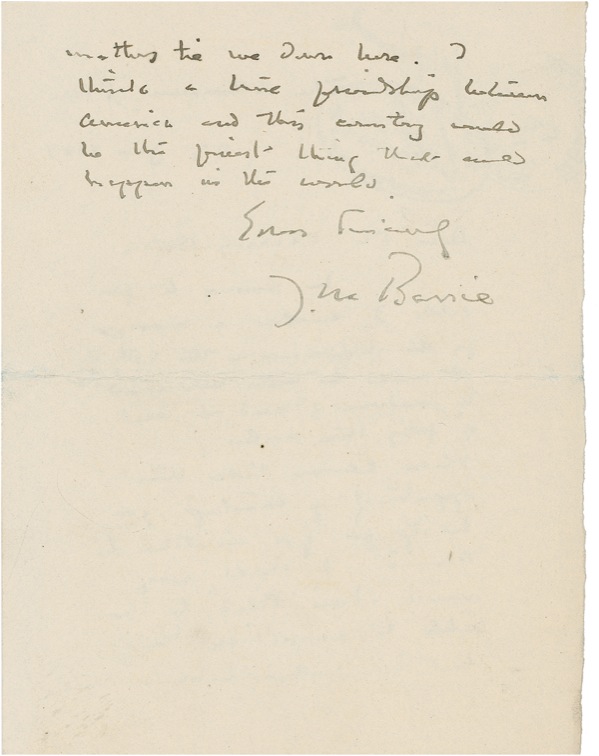 matters down here. I
think a true friendship between
America and this country would
be the finest thing that could
happen in the world
Yours sincerely
J. M. Barrie